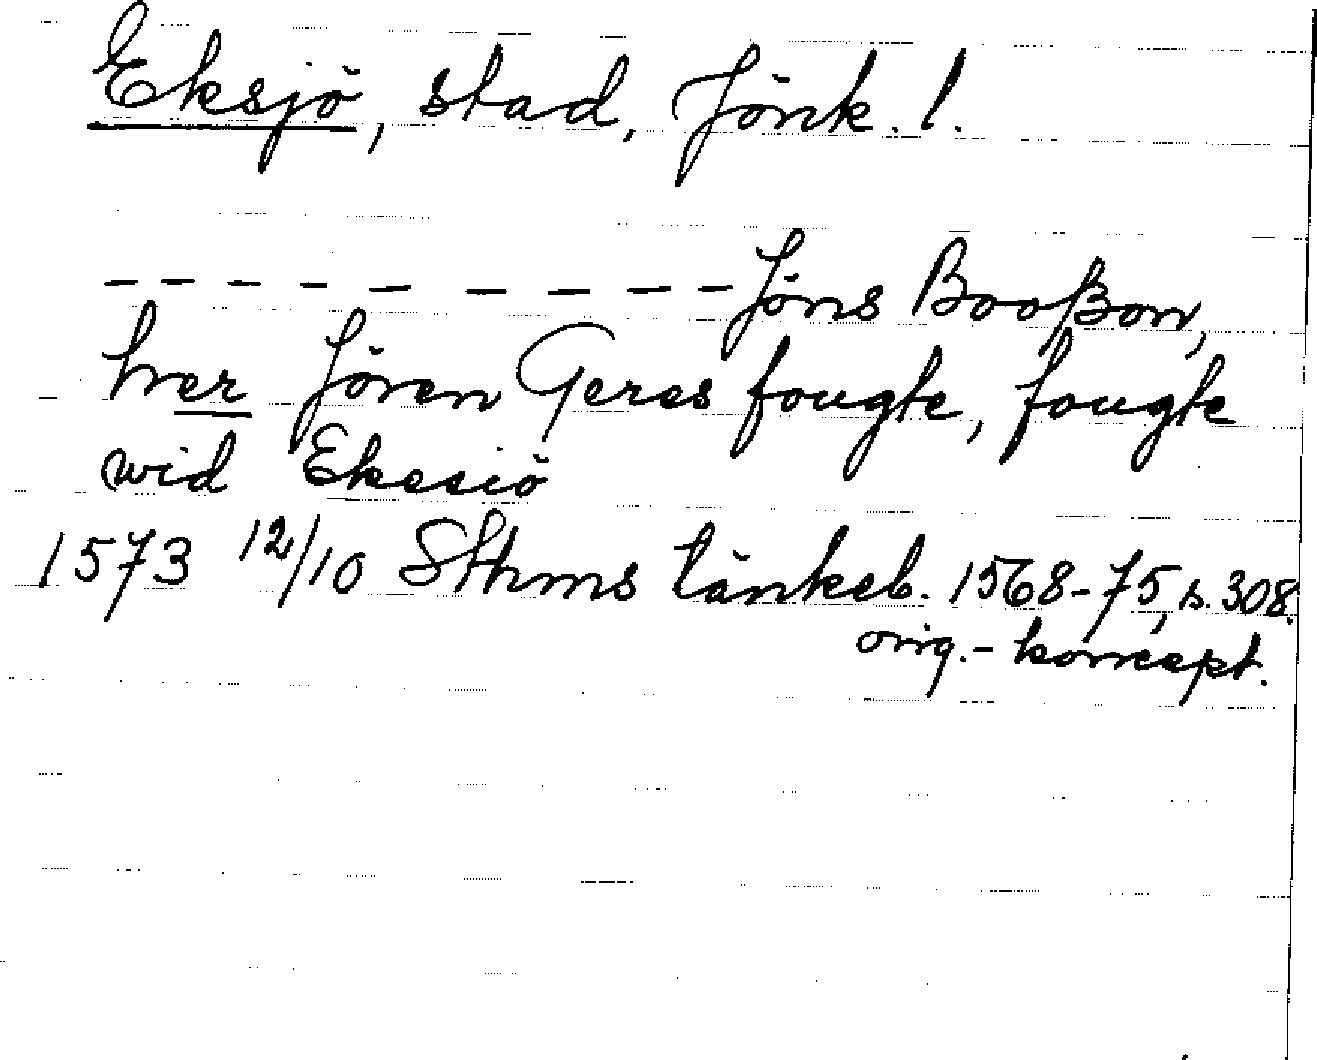 Eksjö, stad, Jönk. l.
— — — — — — — — — Jöns Booßon,
her Jören Geres fougte, fougte
wid Ekesiö
1573 12/10 Sthms tänkeb. 1568-75, s. 308.
orig.- koncept.